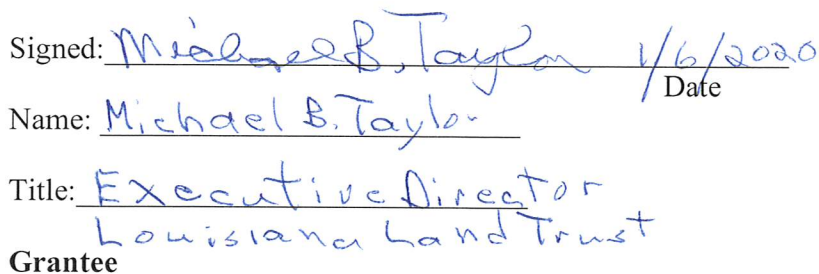 Signed: Michael B. Taylor 1/6/2020
Date
Name: Michael B. Taylor
Title: Executive Director
Louisiana Land Trust
Grantee